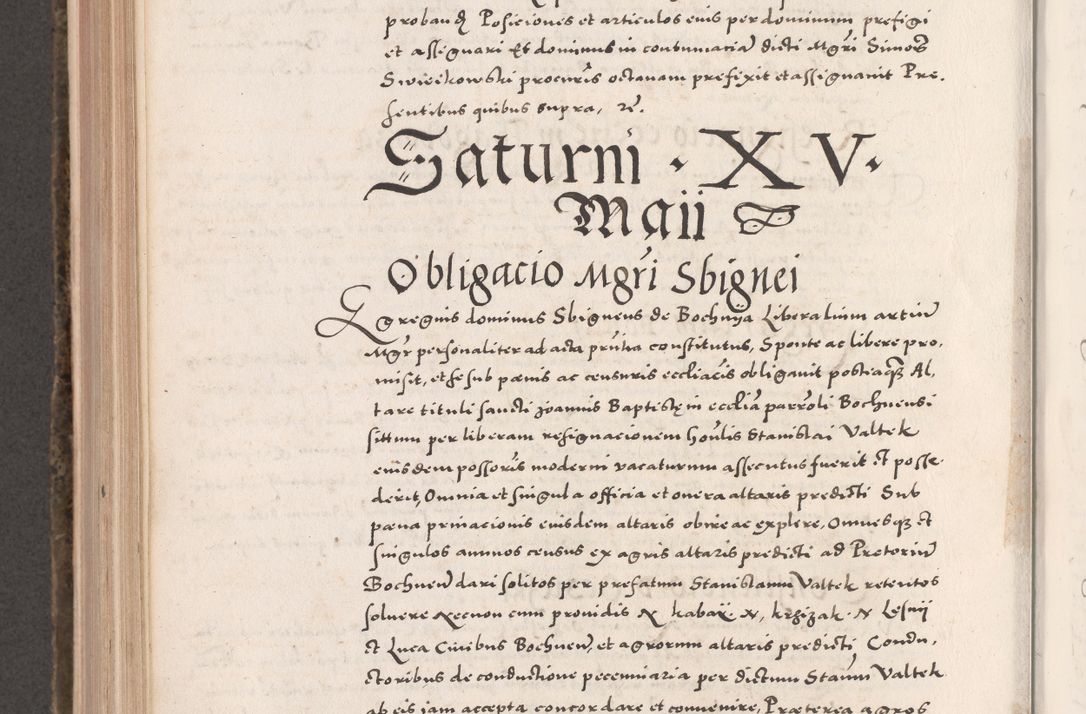 probanđ Posiciones et articulos eius per dominum prefigi
et assignari Et dominus in contumaciã dicti Mgri Simoĩs
Swieykowski procuris octauam prefixit et assignauit Pre-
sentibus quibus supra, rẽ.
Saturni · XV ·
Maii
Obligacio Mgri Sbignei
Egregius dominus Sbigneus de Bochnya Liberalium artiũ
Mgr personaliter ad acta pñtia constitutus, Sponte ac libere pro,
misit, et se sub pœnis ac censuris eccliacis obligauit posteaq̃ Al,
tare tituli sancti Joannis Baptistę in ecclia parroli Bochnensi
sittum per liberam resignacionem honlis Stanislai Valtek
eiusdem possoris moderni vacaturum assecutus fuerit et posse-
derit, Omnia et singula officia et onera altaris predicti Sub
pœna priuacionis eiusdem altaris obire ac explere, Omnesq3 et
singulos annuos census ex agris altaris predicti ad Pretoriũ
Bochneñ dari solitos per prefatum Stanislaum Valtek retentos
soluere Necnon cum prouidis N kabaÿ. N, krzizak. N Lesnii
et Luca Ciuibus Bochneñ, et agrorum altaris predicti Condu,
ctoribus de conductione pecuniaria per dictum Stanm Valtek
ab eis iam accepta concordare et conuenire, Præterea agros